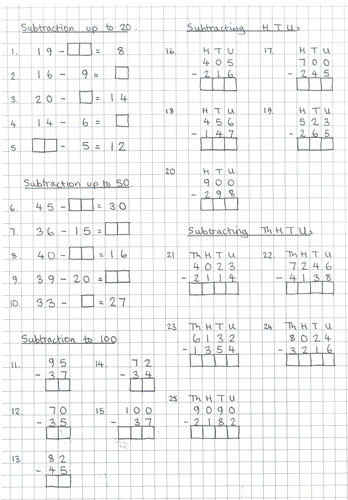 Subtraction up to 20.
1. 19 - □□ = 8
2. 16 - 9 = □
3. 20 - □ = 14
4. 14 - 6 = □
5 □□ - 5 = 12
Subtraction up to 50
6. 45 - □□ = 30
7. 36 - 15 = □□
8. 40 - □□ = 16
9. 39 - 20 = □□
10. 33 - □ = 27
Subtraction to 100
11. 95
- 37
14. 72
- 34
12 70
- 35
15 100
- 37
13 82
- 45
Subtracting H T Us
16. H T U
405
- 216
17. H T U
700
- 245
18 H T U
456
- 147
19. H T U
523
- 265
20 H T U
900
- 298
Subtracting Th H T Us
21 Th H T U
4023
- 2114
22. Th H T U
7246
- 4138
23 Th H T U
6132
- 1354
24 Th H T U
8024
- 3216
25 Th H T U
9090
- 2182